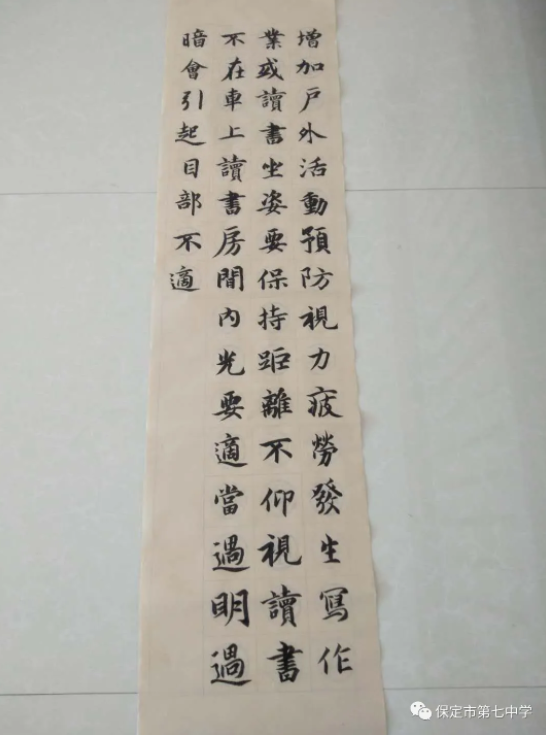 增加戶外活動預防視力疲勞發生寫作
業或讀書坐姿要保持距離不仰視讀書
不在車上讀書房間內光要適當過明過
暗會引起目部不適
保定市第七中学